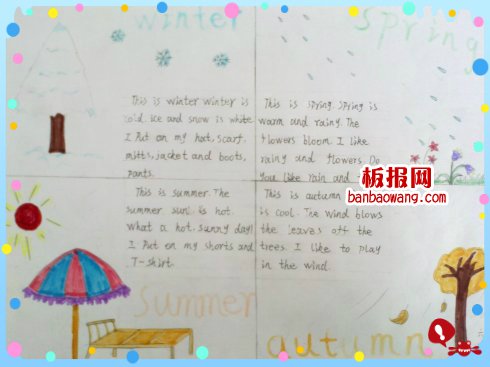 winter
This is winter winter is
cold. ice and snow is white.
I Put on my hat, scarf,
mitts, jacket and boots,
pants.
spring
This is spring. spring is
warm and rainy. The
flowers bloom. I like
rainy and flowers. Do
you like rain and
This is summer. The
summer sun is hot.
What a hot, sunny day!
I Put on my shorts and
T-shirt.
summer
This is autumn
is cool. The wind blows
the leaves off the
trees. I like to play
in the wind.
autumn
板报网
banbaowang.com